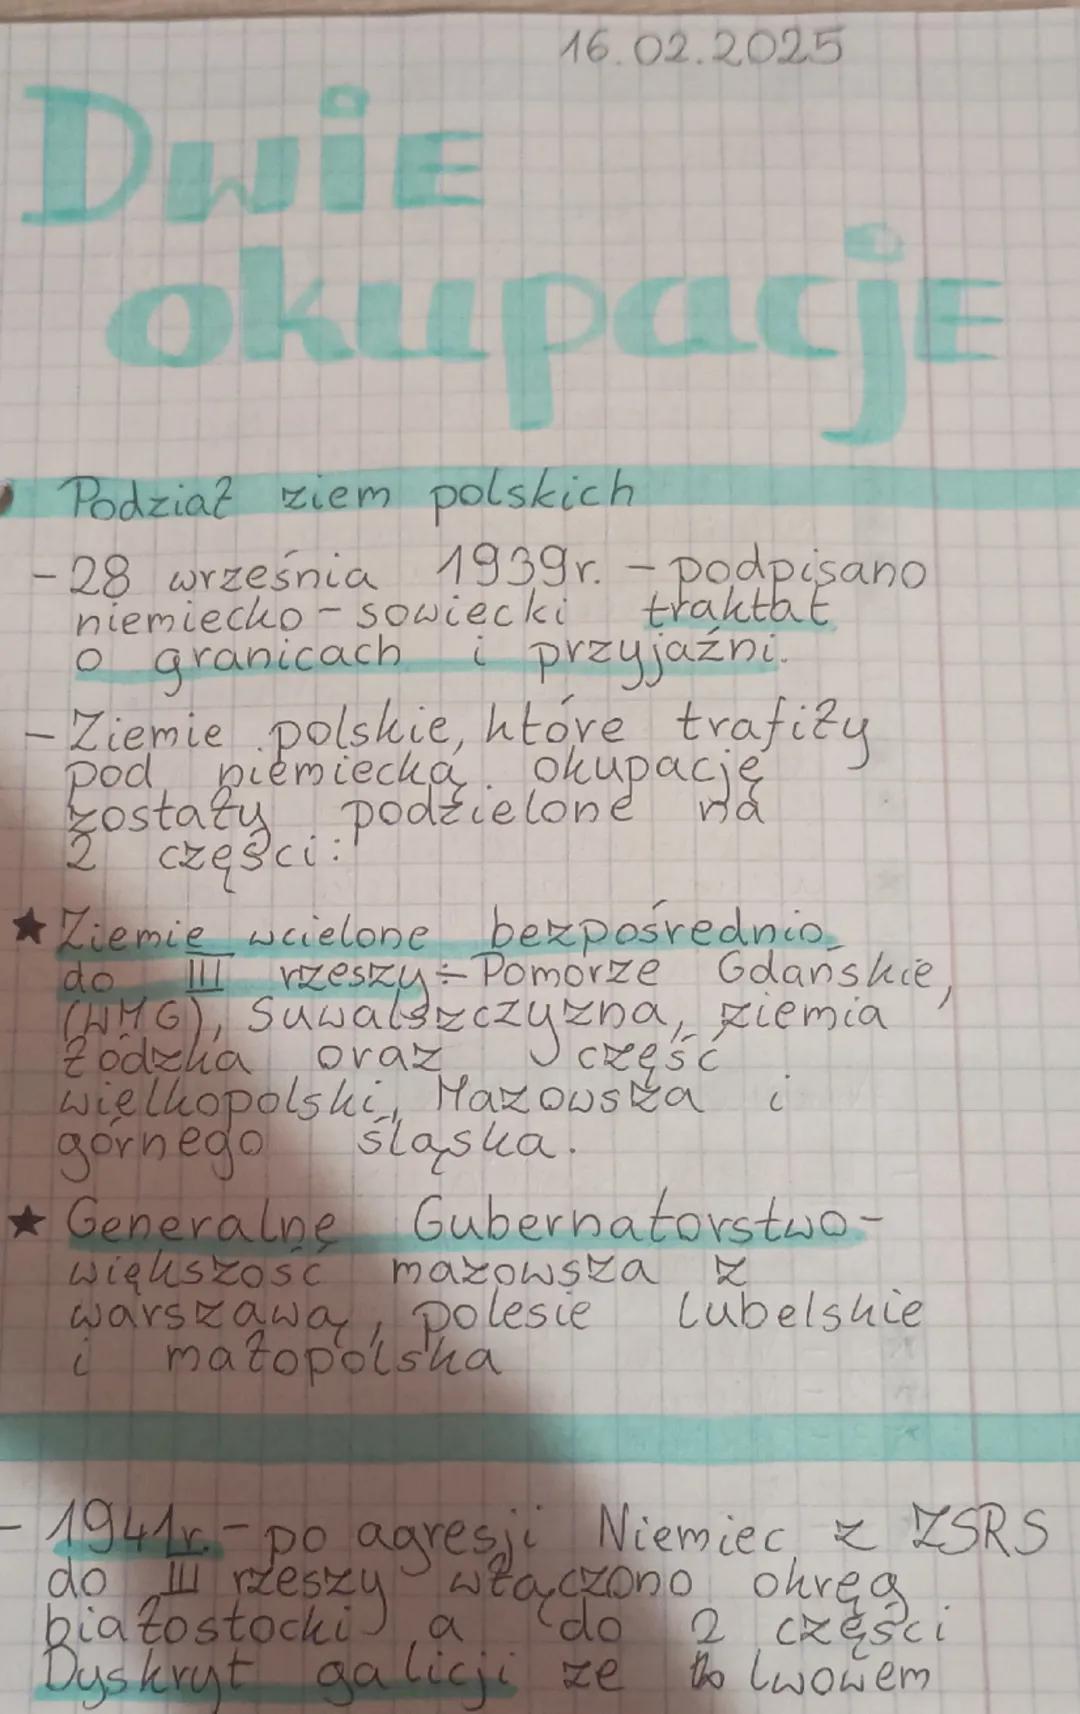 16.02.2025
Dwie
okupacje
Podział ziem polskich
- 28 września 1939r. - podpisano
niemiecko - sowiecki traktat
o granicach i przyjaźni.
- Ziemie polskie, które trafiły
pod niemiecką okupację
zostały podzielone na
2 części:
★ Ziemie wcielone bezpośrednio
do III rzeszy - Pomorze Gdańskie,
(WMG), Suwalszczyzna, ziemia
łódzka oraz część
wielkopolski, Mazowsza i
górnego śląska.
★ Generalne Gubernatorstwo -
większość mazowsza z
warszawą, polesie lubelskie
i małopolska
- 1941r. - po agresji Niemiec z ZSRS
do III rzeszy włączono okręg
białostocki, a do 2 części
Dyskryt galicji ze lwowem